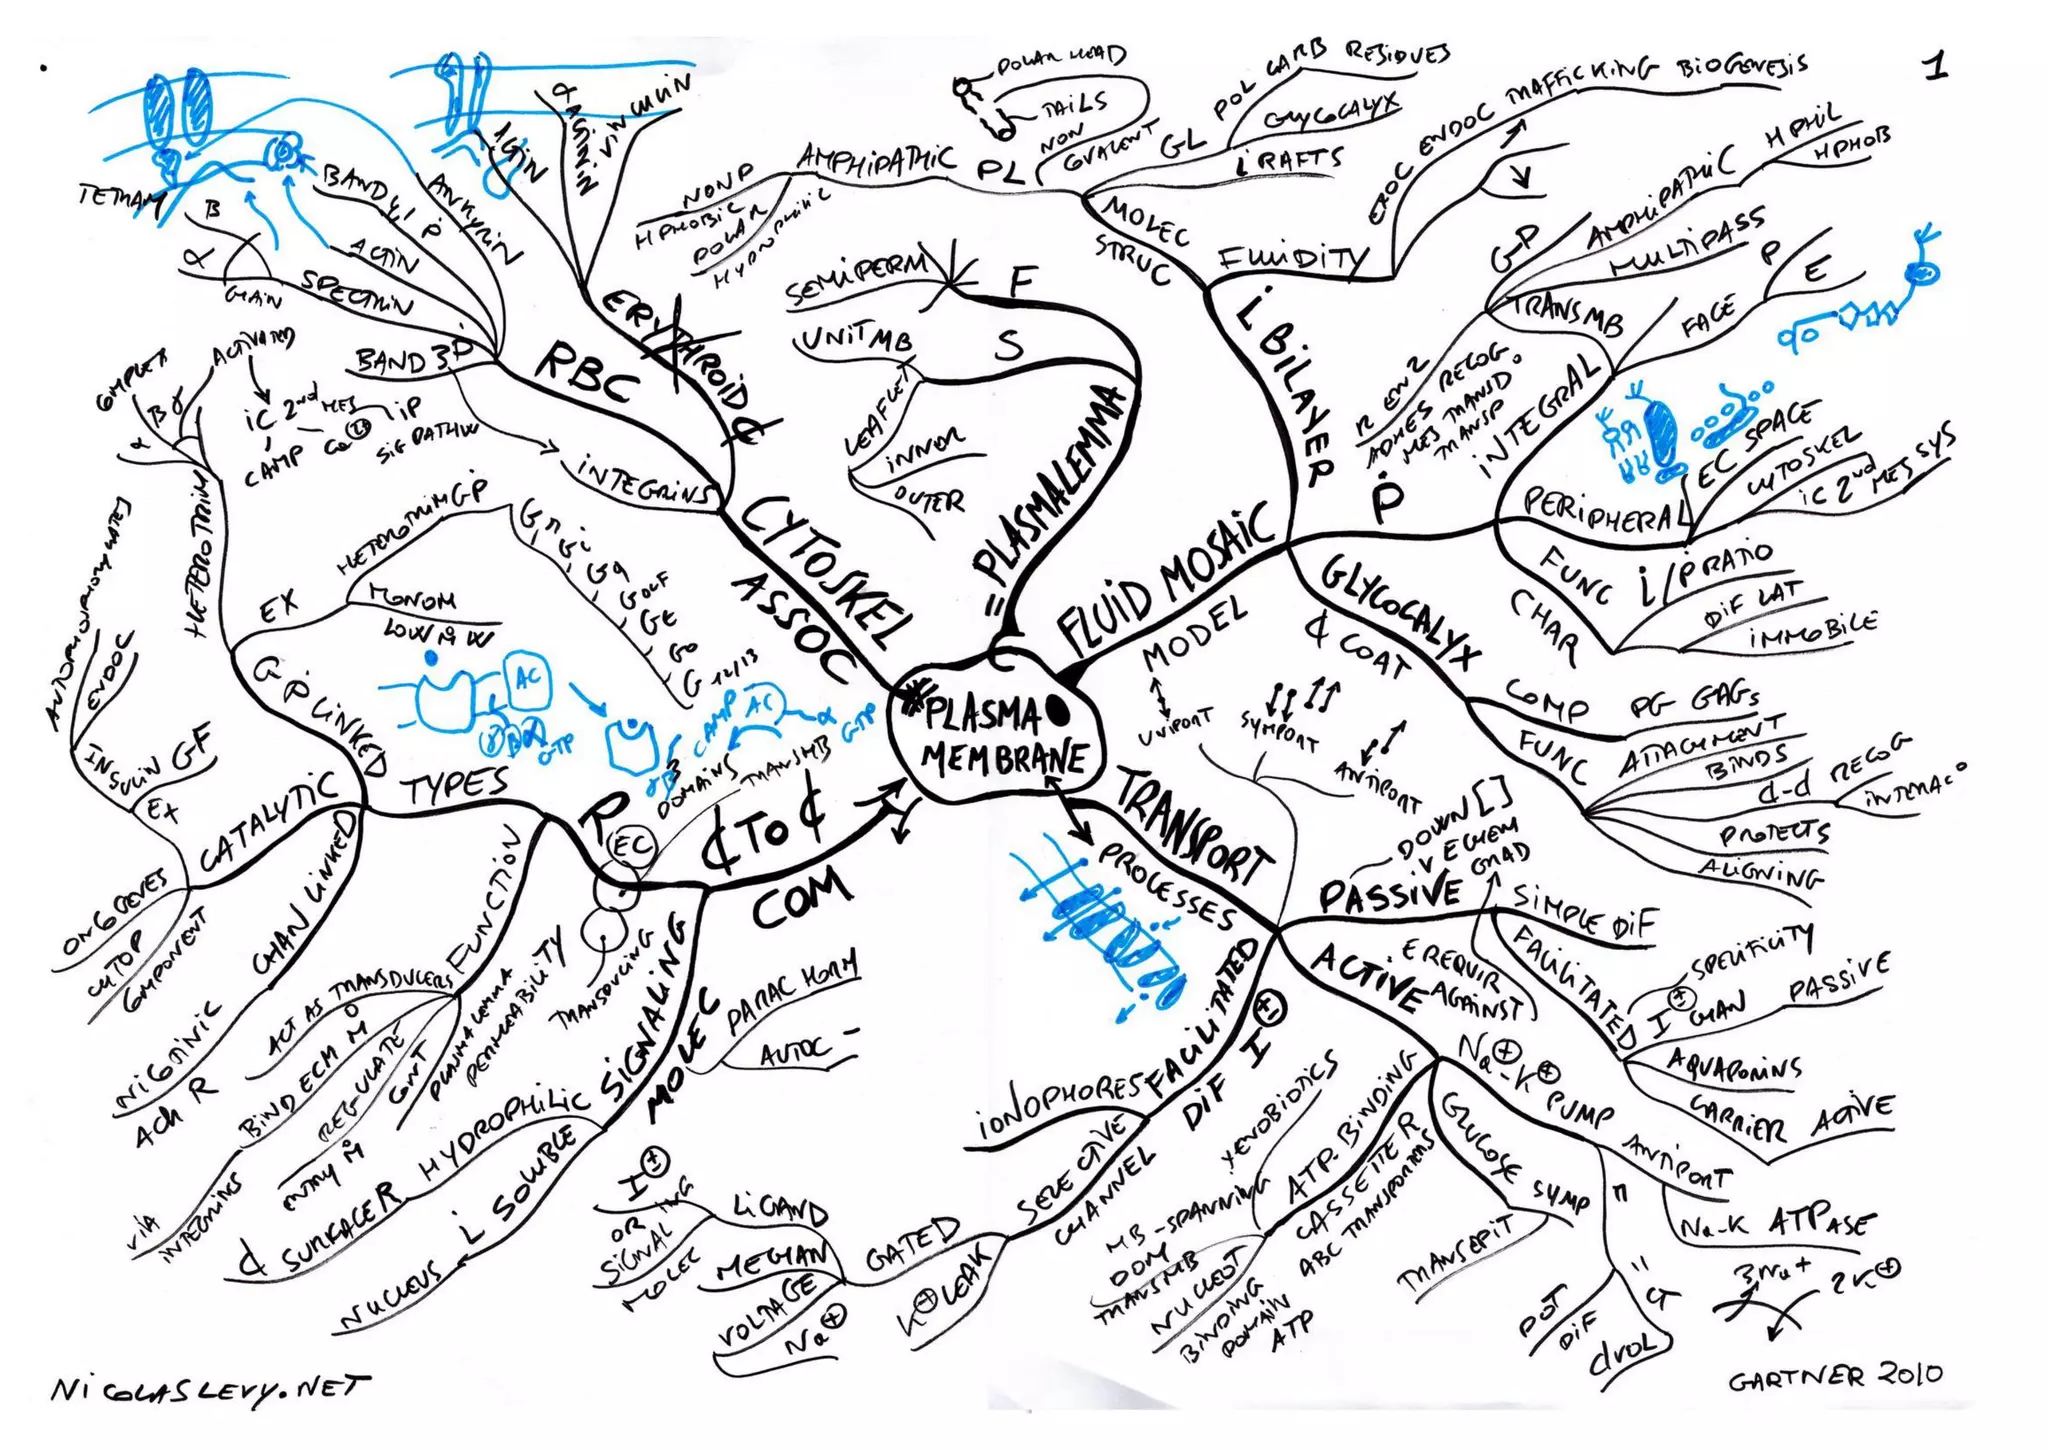 1
PLASMA
MEMBRANE
= PLASMALEMMA
F
SEMIPERM
S
UNIT MB
LEAFLET
INNER
OUTER
FLUID MOSAIC
MODEL
L BILAYER
MOLEC
STRUC
PL
AMPHIPATHIC
NONP
HPHOBIC
POLAR
HYDROPHILIC
POLAR HEAD
TAILS
NON
COVALENT
GL
POL CARB RESIDUES
GLYCOCALYX
L RAFTS
FLUIDITY
EXOC ENDOC TRAFFICKING BIOGENESIS
P
INTEGRAL
TRANSMB
GP
AMPHIPATHIC
HPHIL
HPHOB
MULTIPASS
FACE
P
E
ADHES RECOG.
MES TRANSD.
TRANSP
PERIPHERAL
EC SPACE
CYTOSKEL
IC 2nd MES SYS
FUNC
CHAR
L/P RATIO
DIF LAT
IMMOBILE
GLYCOCALYX
¢ COAT
COMP
PG GAGs
FUNC
ATTACHMENT
BINDS
¢-¢ RECOG
INTERAC°
PROTECTS
ALIGNING
TRANSPORT
PROCESSES
UNIPORT
SYMPORT
ANTIPORT
PASSIVE
DOWN []
V ECHEM
GRAD
SIMPLE DIF
FACILITATED
SPECIFICITY
I± CHAN
PASSIVE
AQUAPORINS
CARRIER
ACTIVE
ACTIVE
E REQUIR
AGAINST
Na+-K+ PUMP
ANTIPORT
Na-K ATPASE
3Na+
2K+
POT
DIF
CT
¢VOL
GLUCOSE SYMP
TRANSEPIT
ATP-BINDING
CASSETTE R
ABC TRANSPORTERS
XENOBIOTICS
MB-SPANNING
DOM
TRANSMB
NUCLEOT
BINDING
DOMAIN
ATP
FACILITATED
DIF I±
IONOPHORES
SELECTIVE
CHANNEL
K+ LEAK
GATED
LIGAND
I±
OR ING
SIGNAL
MOLEC
MECHAN
VOLTAGE
Na+
¢ TO ¢
COM
SIGNALING
MOLEC
PARAC HORM
AUTOC
HYDROPHILIC
¢ SURFACE R
L SOLUBLE
NUCLEUS
R
DOMAINS
EC
TRANSMB
TRANSDUCING
FUNCTION
PLASMALEMMA
PERMEABILITY
CONT
REGULATE
ENTRY M
BIND ECM M
VIA
INTEGRINS
ACT AS TRANSDUCERS
TYPES
CHAN LINKED
NICOTINIC
ACh R
CATALYTIC
EX
INSULIN GF
ENDOC
AUTOPHOSPHORYLATES
ONCOGENES
CYTOP
COMPONENT
G P LINKED
EX
MONOM
LOW M W
HETEROTRIM GP
Gs
Gi
Gq
GOLF
Gt
Go
G 12/13
HETEROTRIM
α
βγ
COMPLEX
ACTIVATED
IC 2nd MES
CAMP
Ca2+
IP
SIG PATHW
AC
GTP
CAMP
AC
α
GTP
CYTOSKEL
ASSOC
INTEGRINS
RBC
BAND 3 P
SPECTRIN
α
β
CHAIN
ACTIN
BAND 4.1 P
ANKYRIN
TETRAM
ERYTHROID ¢
ACTIN
α ACTININ
VINCULIN
NICOLASLEVY.NET
GARTNER 2010